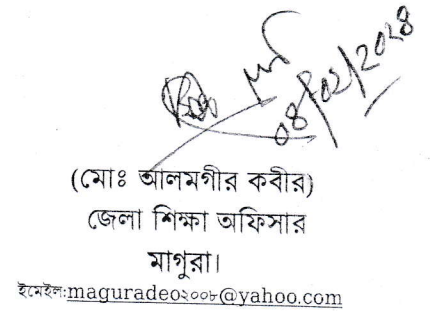 ০৪/০২/২০২৪
(মোঃ আলমগীর কবীর)
জেলা শিক্ষা অফিসার
মাগুরা।
ইমেইল:maguradeo২০০৮@yahoo.com